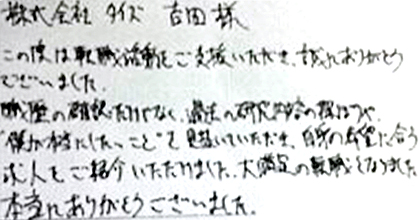 株式会社 タイズ 吉田 様
この度は転職活動をご支援いただき、誠にありがとう
ございました。
職歴の確認だけでなく、過去の研究内容の
"僕が本当にしたいこと"を見抜いていただき、自身の希望に合う
求人をご紹介いただけました。大満足の転職となりました
本当にありがとうございました。